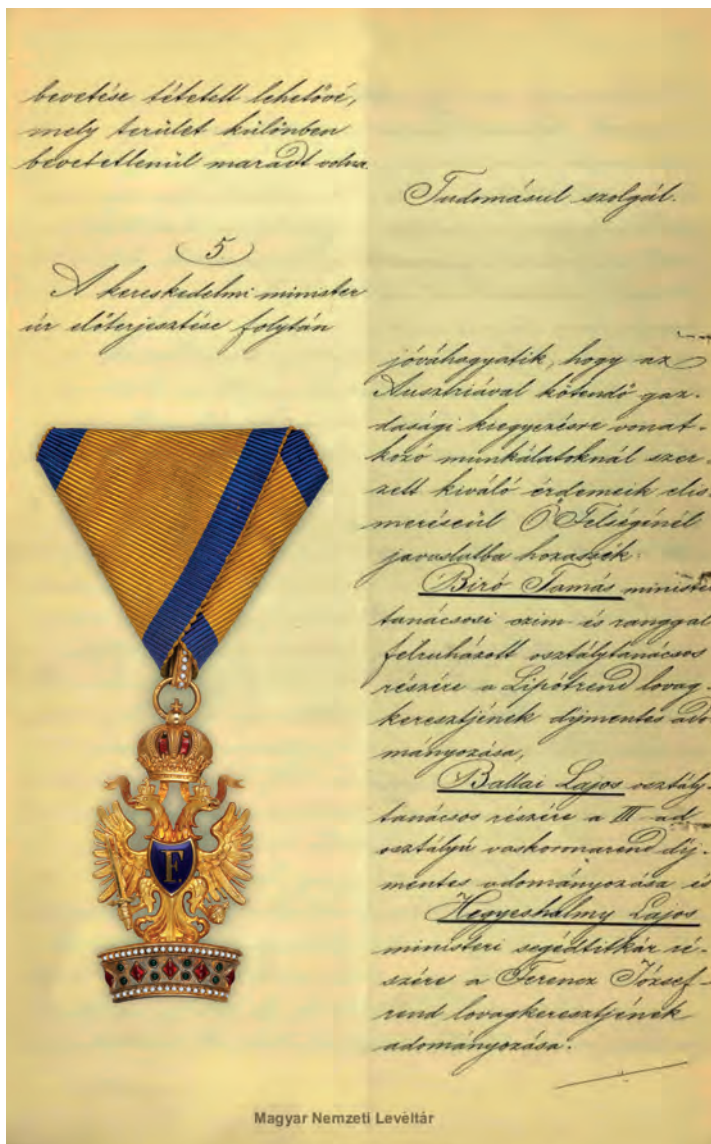 bevetése tétetett lehetővé,
mely terület különben
bevetetlenül maradt volna.
Tudomásul szolgál.
5
A kereskedelmi minister
úr előterjesztése folytán
jóváhagyatik, hogy az
Ausztriával kötendő gaz-
dasági kiegyezésre vonat-
kozó munkálatoknál szer-
zett kiváló érdemeik elis-
meréseül Ő Felségénél
javaslatba hozassék:
Biró Tamás ministe
tanácsosi czim és ranggal
felruházott osztálytanácsos
részére a Lipótrend lovag-
keresztjének díjmentes ado
mányozása,
Ballai Lajos osztály-
tanácsos részére a III-ad
osztályú vaskoronarend díj-
mentes adományozása és
Hegyeshalmy Lajos
ministeri segédtitkár ré-
szére a Ferencz József-
rend lovagkeresztjének
adományozása.
F
Magyar Nemzeti Levéltár